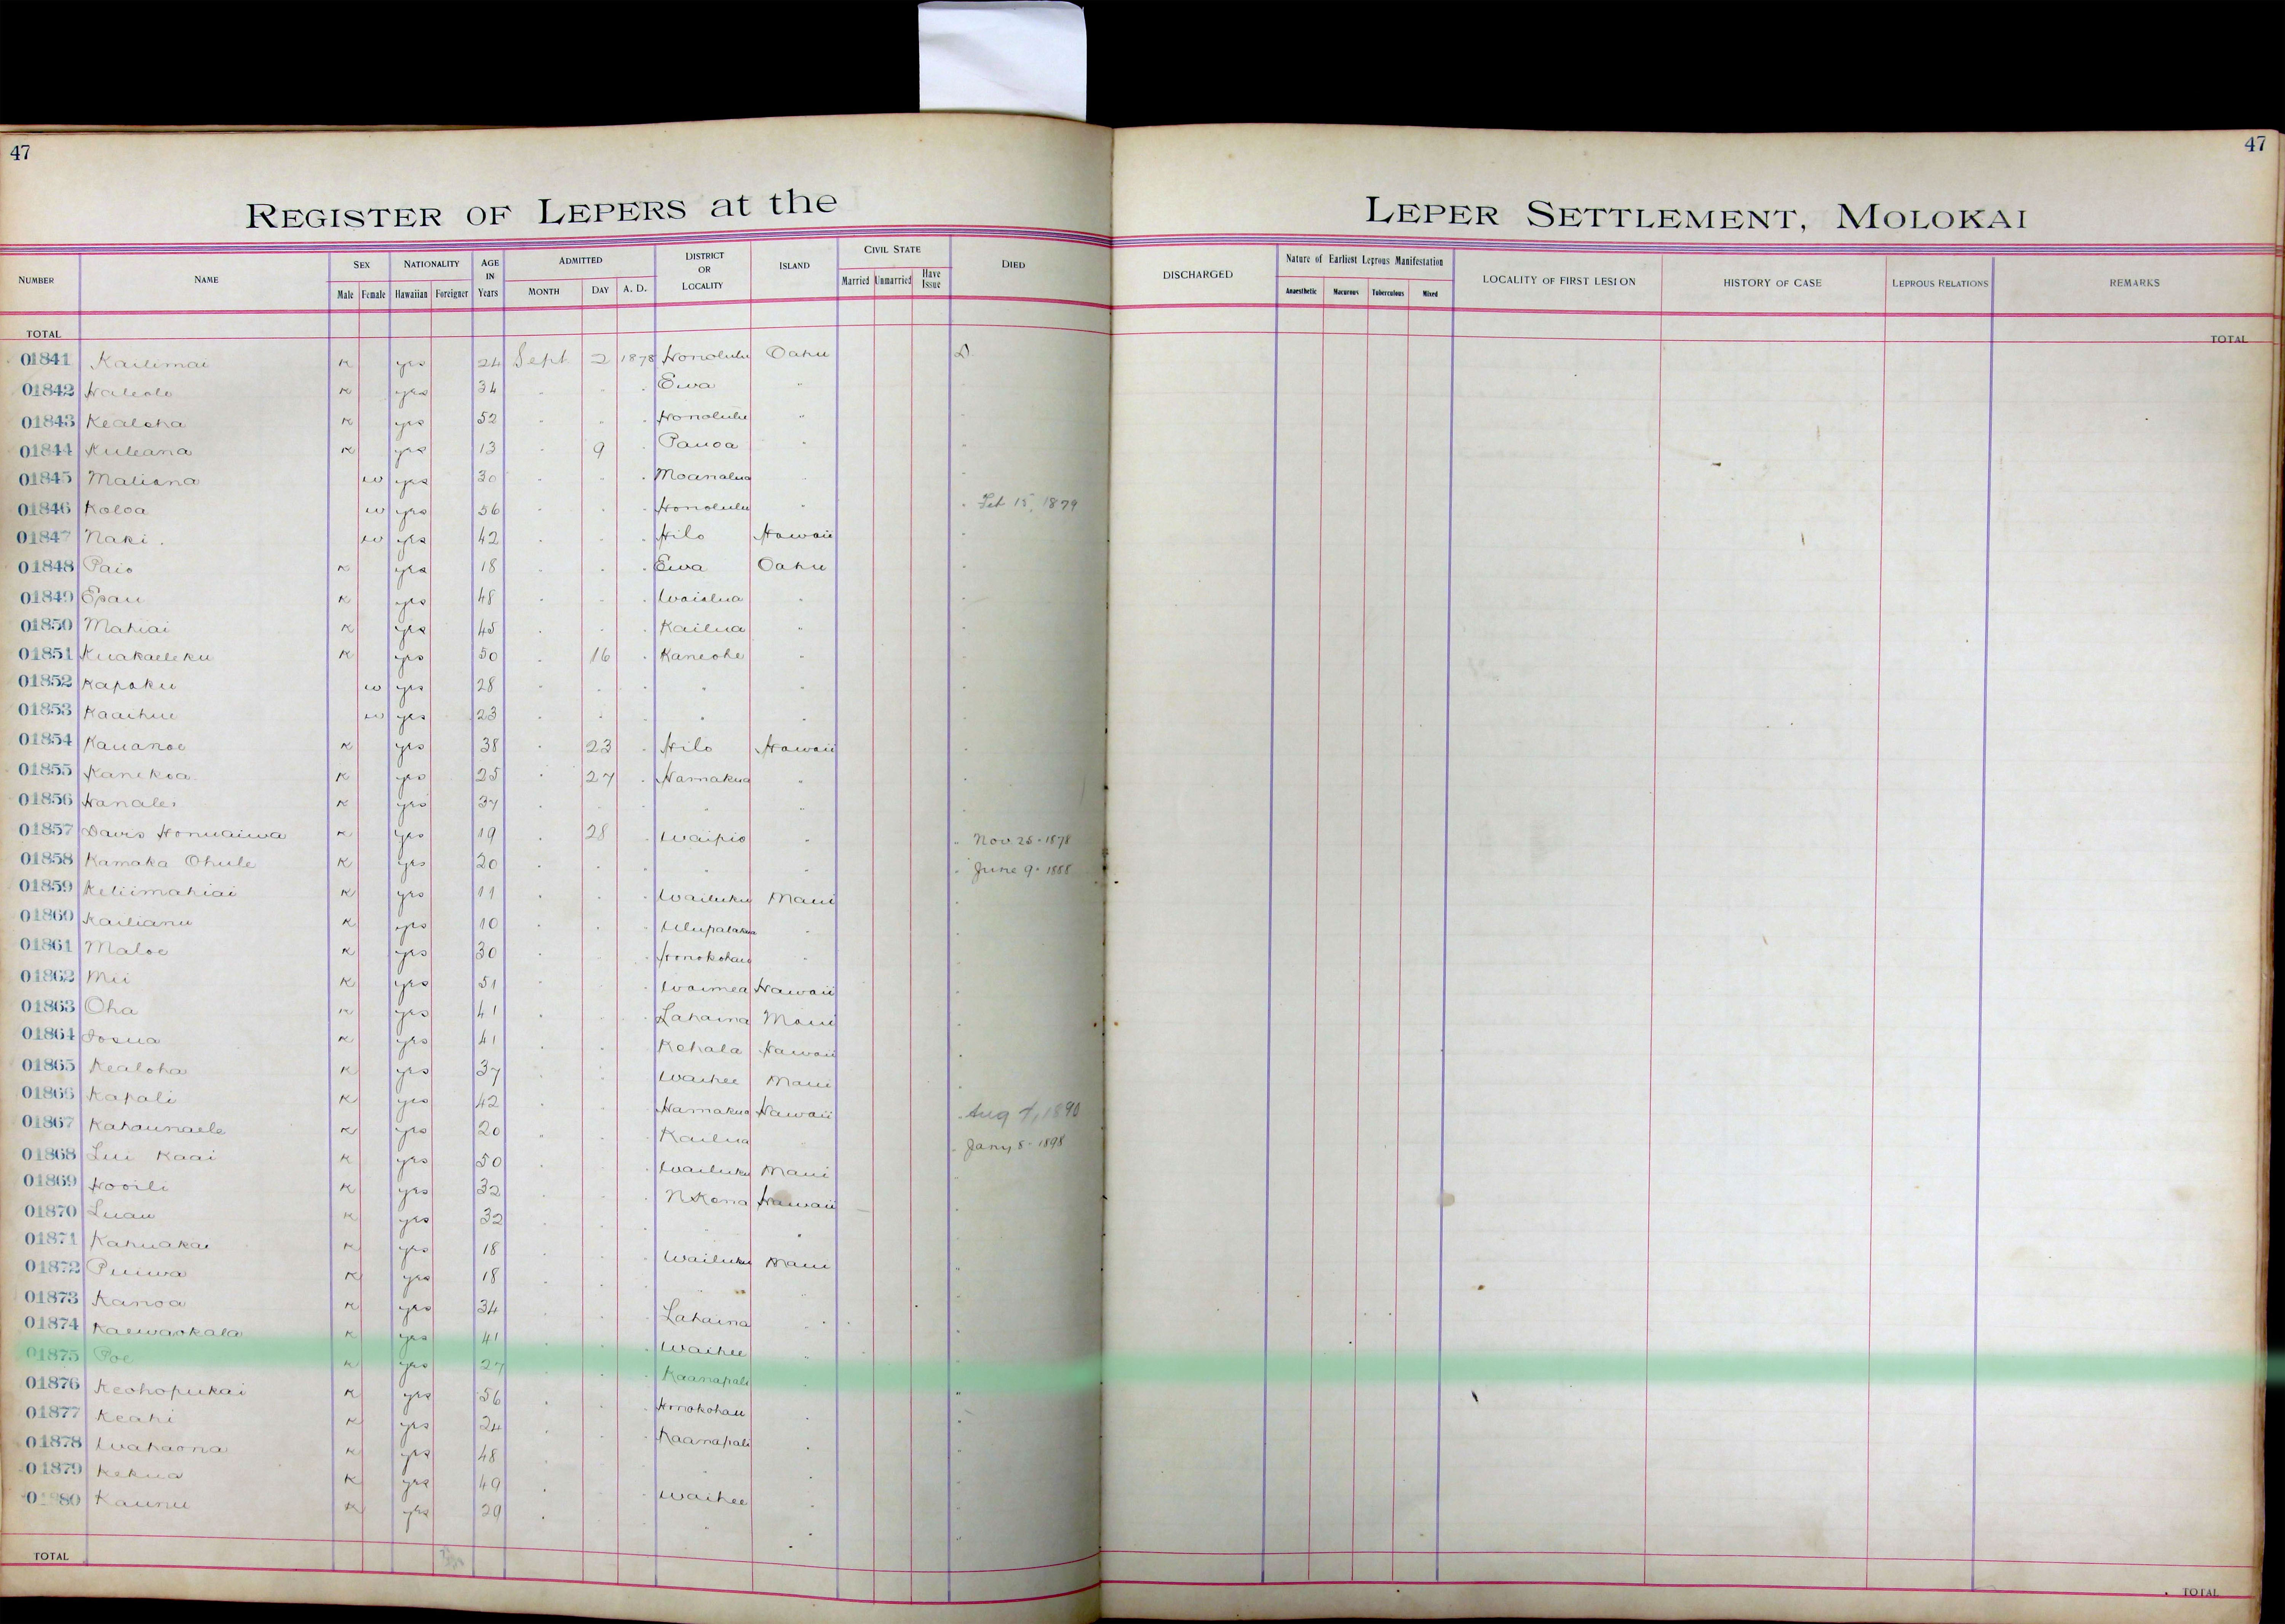 47
47
REGISTER OF LEPERS at the
LEPER SETTLEMENT, MOLOKAI
NUMBER NAME SEX NATIONALITY AGE IN Years ADMITTED DISTRICT OR LOCALITY ISLAND CIVIL STATE DIED DISCHARGED Nature of Earliest Leprous Manifestation LOCALITY OF FIRST LESION HISTORY OF CASE LEPROUS RELATIONS REMARKS
Male Female Hawaiian Foreigner MONTH DAY A. D. Married Unmarried Have Issue Anaesthetic Macurous Tuberculous Mixed
TOTAL TOTAL
01841 Kailimai K yes 24 Sept 2 1878 Honolulu Oahu D
01842 Haleolo K yes 34 " " " Ewa "
01843 Kealoha K yes 52 " " " Honolulu "
01844 Kuleana K yes 13 " 9 " Pauoa " "
01845 Maliana w yes 30 " " " Moanalua " "
01846 Koloa w yes 56 " " " Honolulu " " Feb 15, 1879
01847 Naki w yes 42 " " " Hilo Hawaii "
01848 Paio K yes 18 " " " Ewa Oahu "
01849 Epau K yes 48 " " " Waialua " "
01850 Mahiai K yes 45 " " " Kailua " "
01851 Kuakaeleku K yes 50 " 16 " Kaneohe " "
01852 Kapoku w yes 28 " " " " " "
01853 Kaaihue w yes 23 " " " " " "
01854 Kauanoe K yes 38 " 23 " Hilo Hawaii "
01855 Kanekoa K yes 25 " 27 " Hamakua " "
01856 Hanalei K yes 37 " " " " " "
01857 Davis Honuaiwa K yes 19 " 28 " Waipio " " Nov 25 - 1878
01858 Kamaka Ohule K yes 20 " " " " " " June 9 - 1888
01859 Keliimahiai K yes 11 " " " Wailuku Maui "
01860 Kailianu K yes 10 " " " Ulupalakua " "
01861 Maloe K yes 30 " " " Honokohau " "
01862 Mii K yes 51 " " " Waimea Hawaii "
01863 Oha K yes 41 " " " Lahaina Maui "
01864 Iosua K yes 41 " " " Kohala Hawaii "
01865 Kealoha K yes 37 " " " Waihee Maui "
01866 Kapali K yes 42 " " " Hamakua Hawaii " Aug 7, 1890
01867 Kahaunaele K yes 20 " " " Kailua " Jany 8 - 1898
01868 Lui Kaai K yes 50 " " " Wailuku Maui "
01869 Hooili K yes 32 " " " N Kona Hawaii "
01870 Luau K yes 32 " " " " "
01871 Kahuakai K yes 18 " " " Wailuku Maui "
01872 Puiwa K yes 18 " " " " "
01873 Kanoa K yes 34 " " " Lahaina " "
01874 Kaewaokala K yes 41 " " " Waihee " "
01875 Poe K yes 27 " " " Kaanapali " "
01876 Keohopukai K yes 56 " " " Hnokohau " "
01877 Keahi K yes 24 " " " Kaanapali " "
01878 Wahaona K yes 48 " " " " "
01879 Kekua K yes 49 " " " Waihee " "
01880 Kaunu K yes 29 " " " " "
TOTAL TOTAL